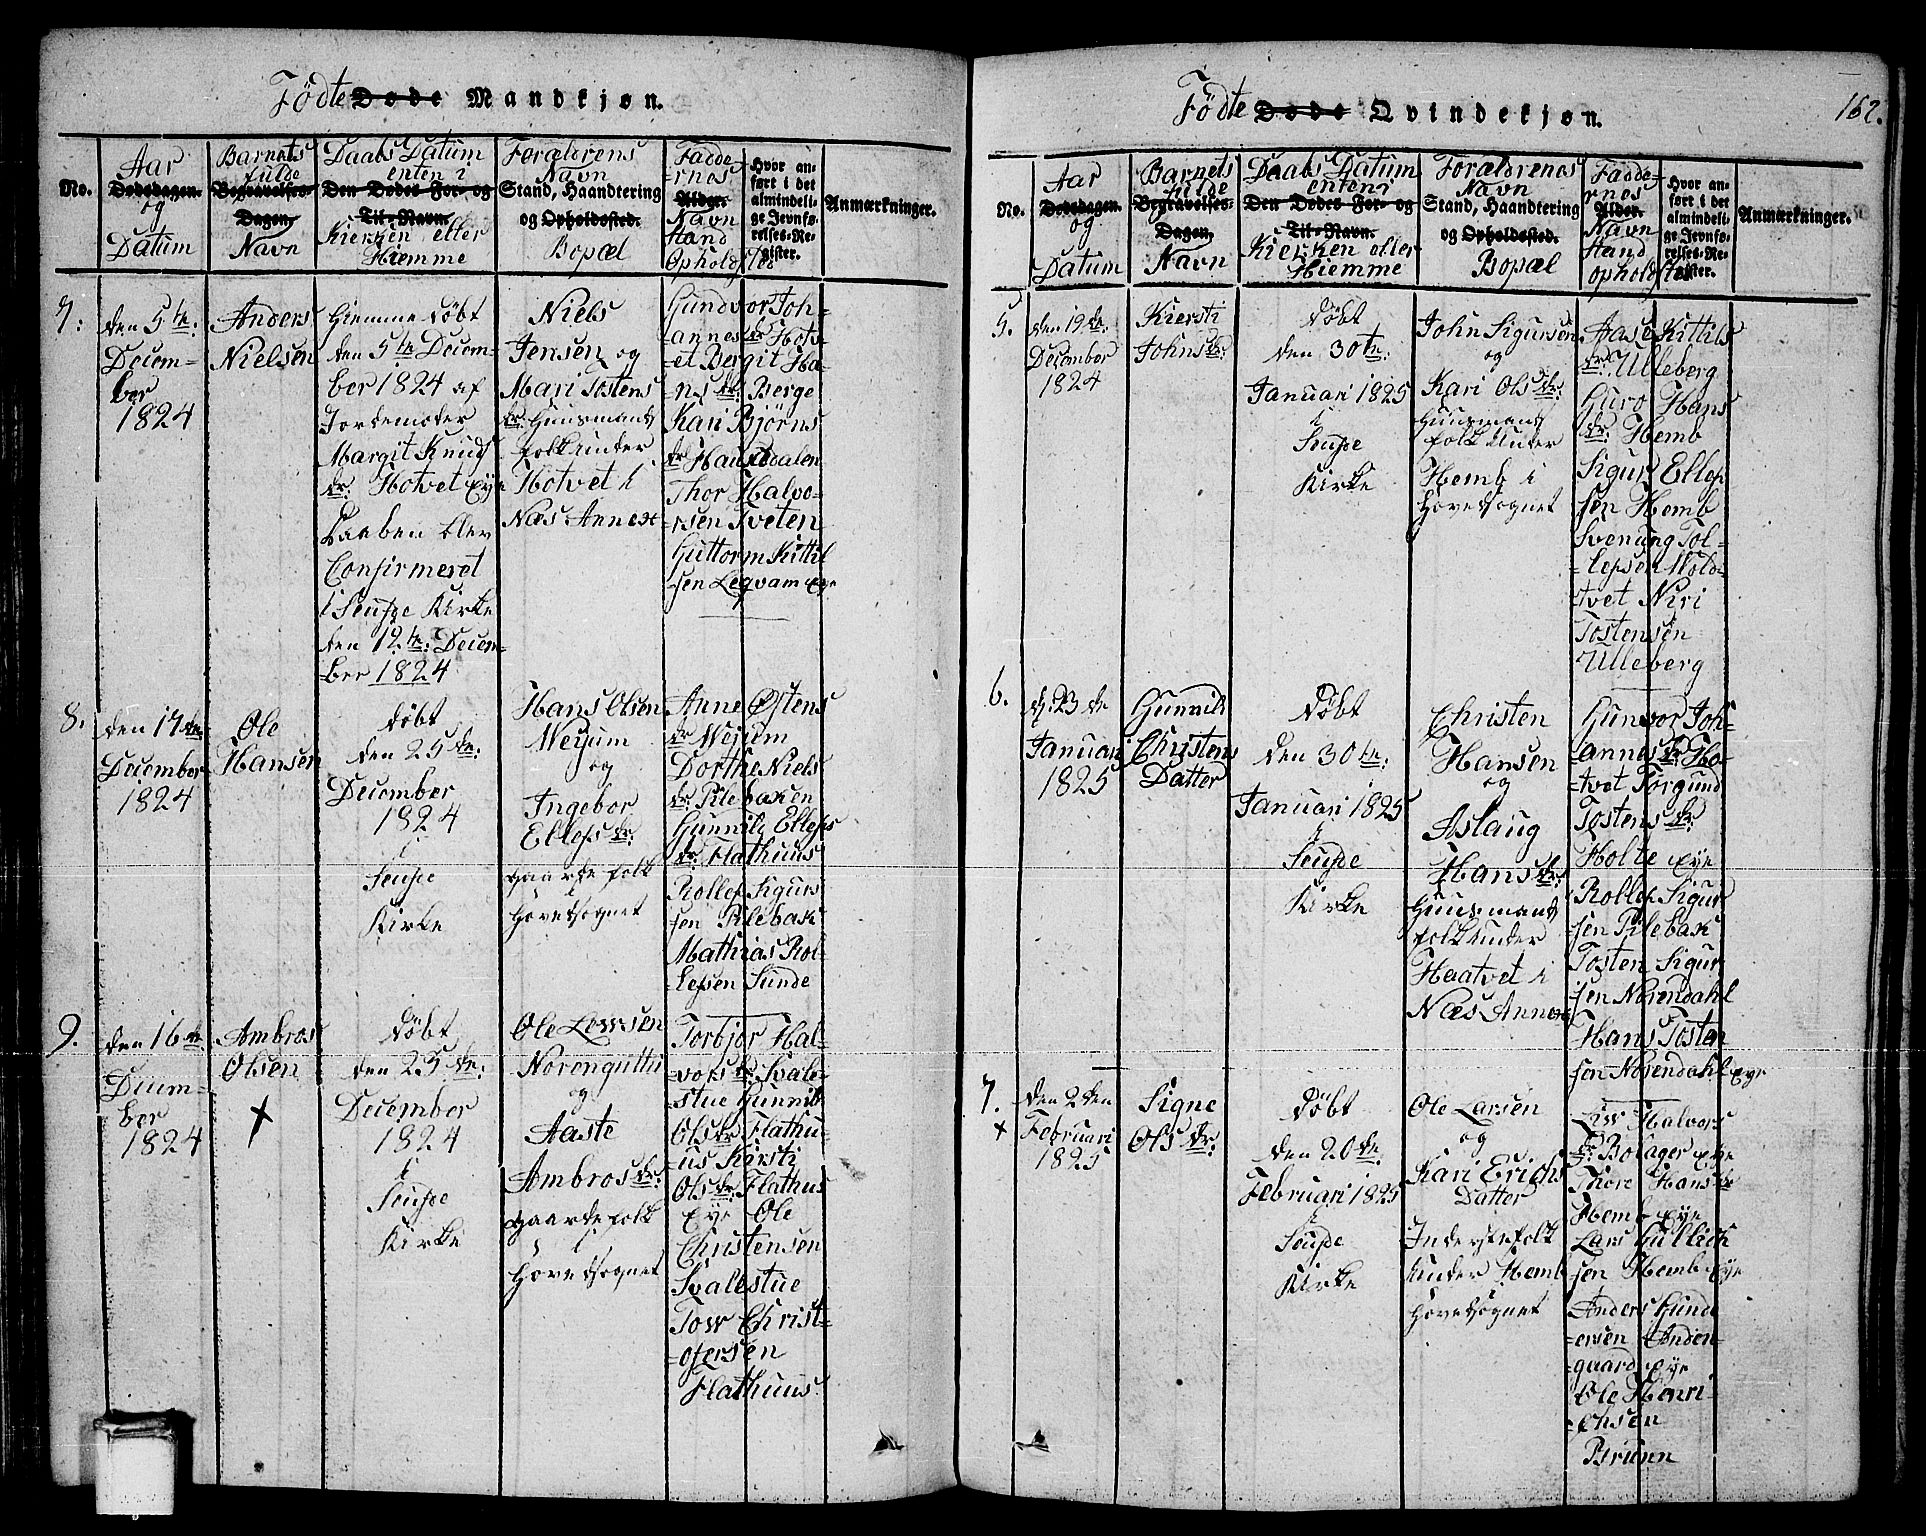 Födte Døde Mandkjøn.
No.
Aar
Dødsdagen.
og
Datum
Barnets
fulde
Begravelses-
Dagen.
Navn
Daabs Datum
enten i
Den Dødes For- og
Til-Navn.
Kierken eller
Hiemme
Forældrens
Navn
Stand, Haandtering
og Opholdssted.
Bopæl
Fadde-
rnes
Alder.
Navn
Stand
Opholdsted
Hvor an-
ført i det
almindeli-
ge Jevnfø-
relses-Re-
gister.
Anmærkninger.
7.
den 5te:
Decem-
ber
1824
Anders
Nielsen
Hiemme døbt
den 5te Decem-
ber 1824 af
Jordemoder
Margit Knuds
dr: Hotvet Eye
Daaben blev
Confirmeret
i Seufde Kirke
den 12te: Decem-
ber 1824
Niels
Jensen og
Mari Tostens
dr: Huusmands
folk under
Hotvet i
Næs Annex
Gundvor Joh-
annes dr Hotv-
et Bergit Ha-
ns dr: Berge
Kari Bjørns
dr Hansdalen
Thor Halvo-
rsen Tveten
Guttorm Kittil
sen Legvam Eye
8.
den 17de:
December
1824
Ole
Hansen
døbt
den 25de:
December
1824
i
Seufde
Kirke
Hans Olsen
Wejum
og
Ingebor
Ellefs dr:
gaardefolk
Hovedsognet
Anne Østens
dr Wejum
Dorthe Niels
dr: Pilebaken
Gunnild Ellefs
dr: Flathuus
Rollef Sigurs
sen Pilebak
Mathias Rol-
lefsen Sunde
9.
den 16de:
Decem-
ber
1824
Ambros
Olsen
+
døbt
den 25de:
December
1824
i
Seufde
Kirke
Ole Lowsen
Norengutti
og
Aaste
Ambros dr:
gaardefolk
i
Hovedsognet
Torbjør Hal-
vors dr Svale-
stue Gunnild
Ols dr Flathu-
us Kirsti
Ols dr: Flathus
Eye Ole
Christensen
Svalestue
Tow Christ-
ofersen
Flathuus
Födte Døde Qvindekjøn.
162.
No.
Aar
Dødsdagen.
og
Datum
Barnets
fulde
Begravelses-
Dagen.
Navn
Daabs Datum
enten i
Den Dødes For- og
Til-Navn.
Kierken eller
Hiemme
Forældrenes
Navn
Stand, Haandtering
og Opholdssted.
Bopæl
Fadde-
rnes
Alder.
Navn
Stand
opholdsted
Hvor an-
ført i det
almindeli-
ge Jevnfø-
relses-Re-
gister.
Anmærkninger.
5.
den 19de:
December
1824
Kiersti
Johns dr:
døbt
den 30te:
Januari 1825
i
Seufde
Kirke
John Sigursen
og
Kari Ols dr:
Huusmands
folk under
Hemb i
Hovedsognet
Aase Kittils
dr: Ulleberg
Guro Hans
dr: Hemb
Sigur Ellef
sen Hemb
Svenung Tol-
lefsen Mold-
tvet Niri
Tostensen
Ulleberg
6.
d: 23de
Januari
1825
Gunnild
Christens
Datter
døbt
den 30te:
Januari 1825
i
Seufde
Kirke
Christen
Hansen
og
Aslaug
Hans dr:
Huusmands
folk under
Haatvet i
Næs Annex
Gunvor Joh-
annes dr: Ho-
tvet Torgund
Tostens dr:
Holte Eye
Rollef Sigur
sen Pilebak
Tosten Sigur
sen Norendahl
Hans Tosten
sen Norendahl Eye
7.
+
den 2den
Februari
1825
Signe
Ols dr:
døbt
den 20de:
Februari 1825
i
Seufde
Kirke
Ole Larsen
og
Kari Erichs
Datter
Inderstefolk
under Hemb
Hovedsognet
Liw Halvors
dr: Bolager Eye
Thore Hans dr
Hemb Eye
Lars Gullich
sen Hemb Eye
Anders Gund
ersen Anden-
gaard Eye
Ole Henri-
chsen
Brunn